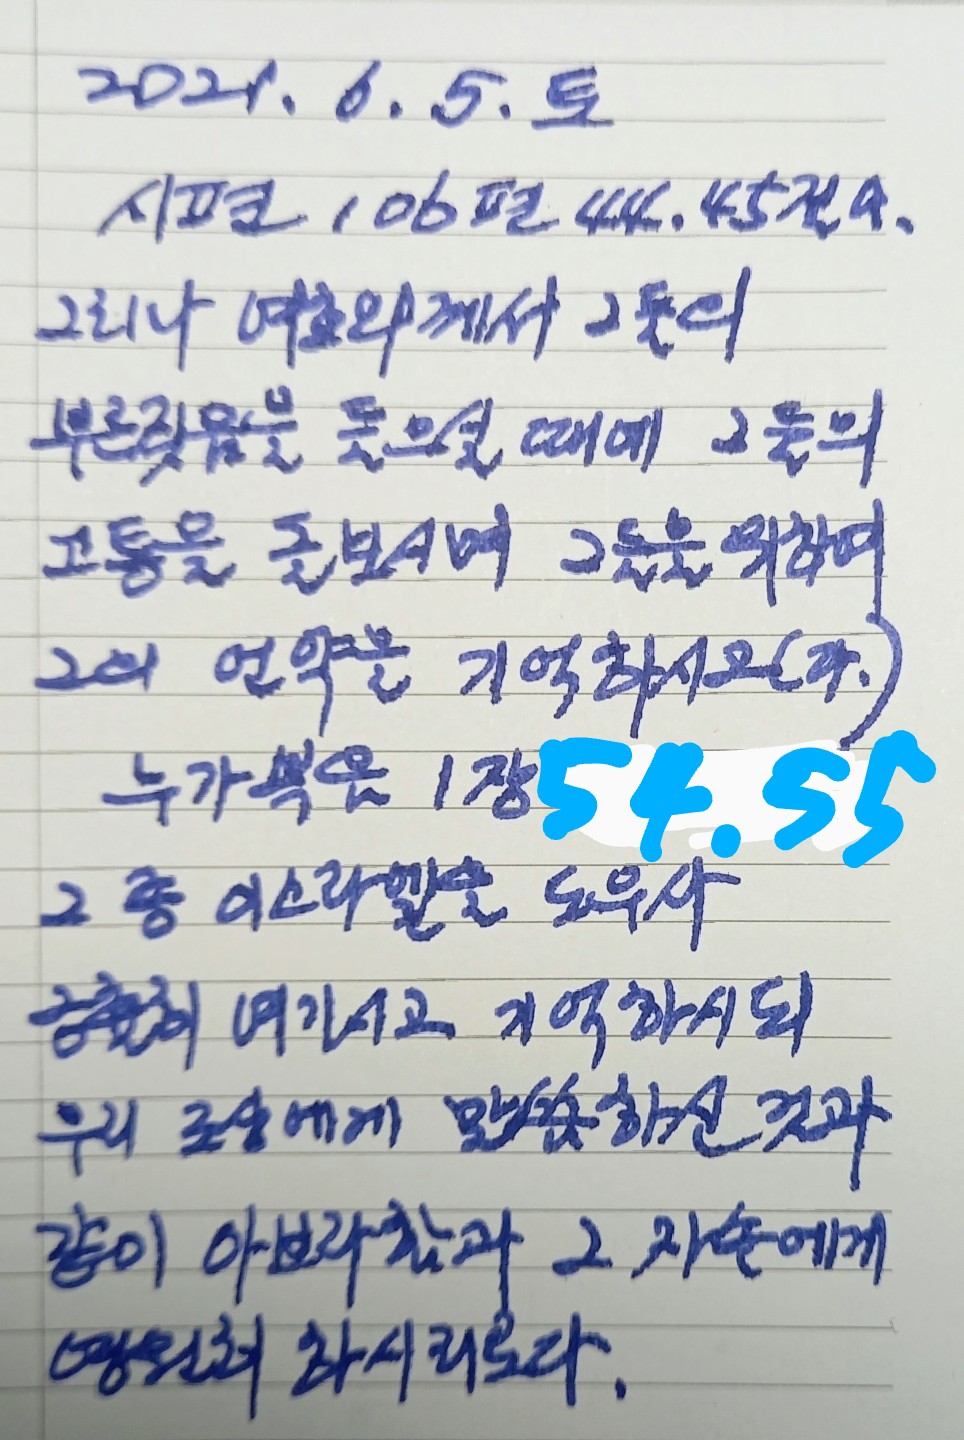 2021. 6. 5. 토
시편 106편 44.45절
그러나 여호와께서 그들의
부르짖음을 들으실 때에 그들의
고통을 돌보시며 그들을 위하여
그의 언약을 기억하시고(라.)
누가복음 1장 54.55
그 종 이스라엘을 도우사
긍휼히 여기시고 기억하시되
우리 조상에게 말씀하신 것과
같이 아브라함과 그 자손에게
영원히 하시리로다.